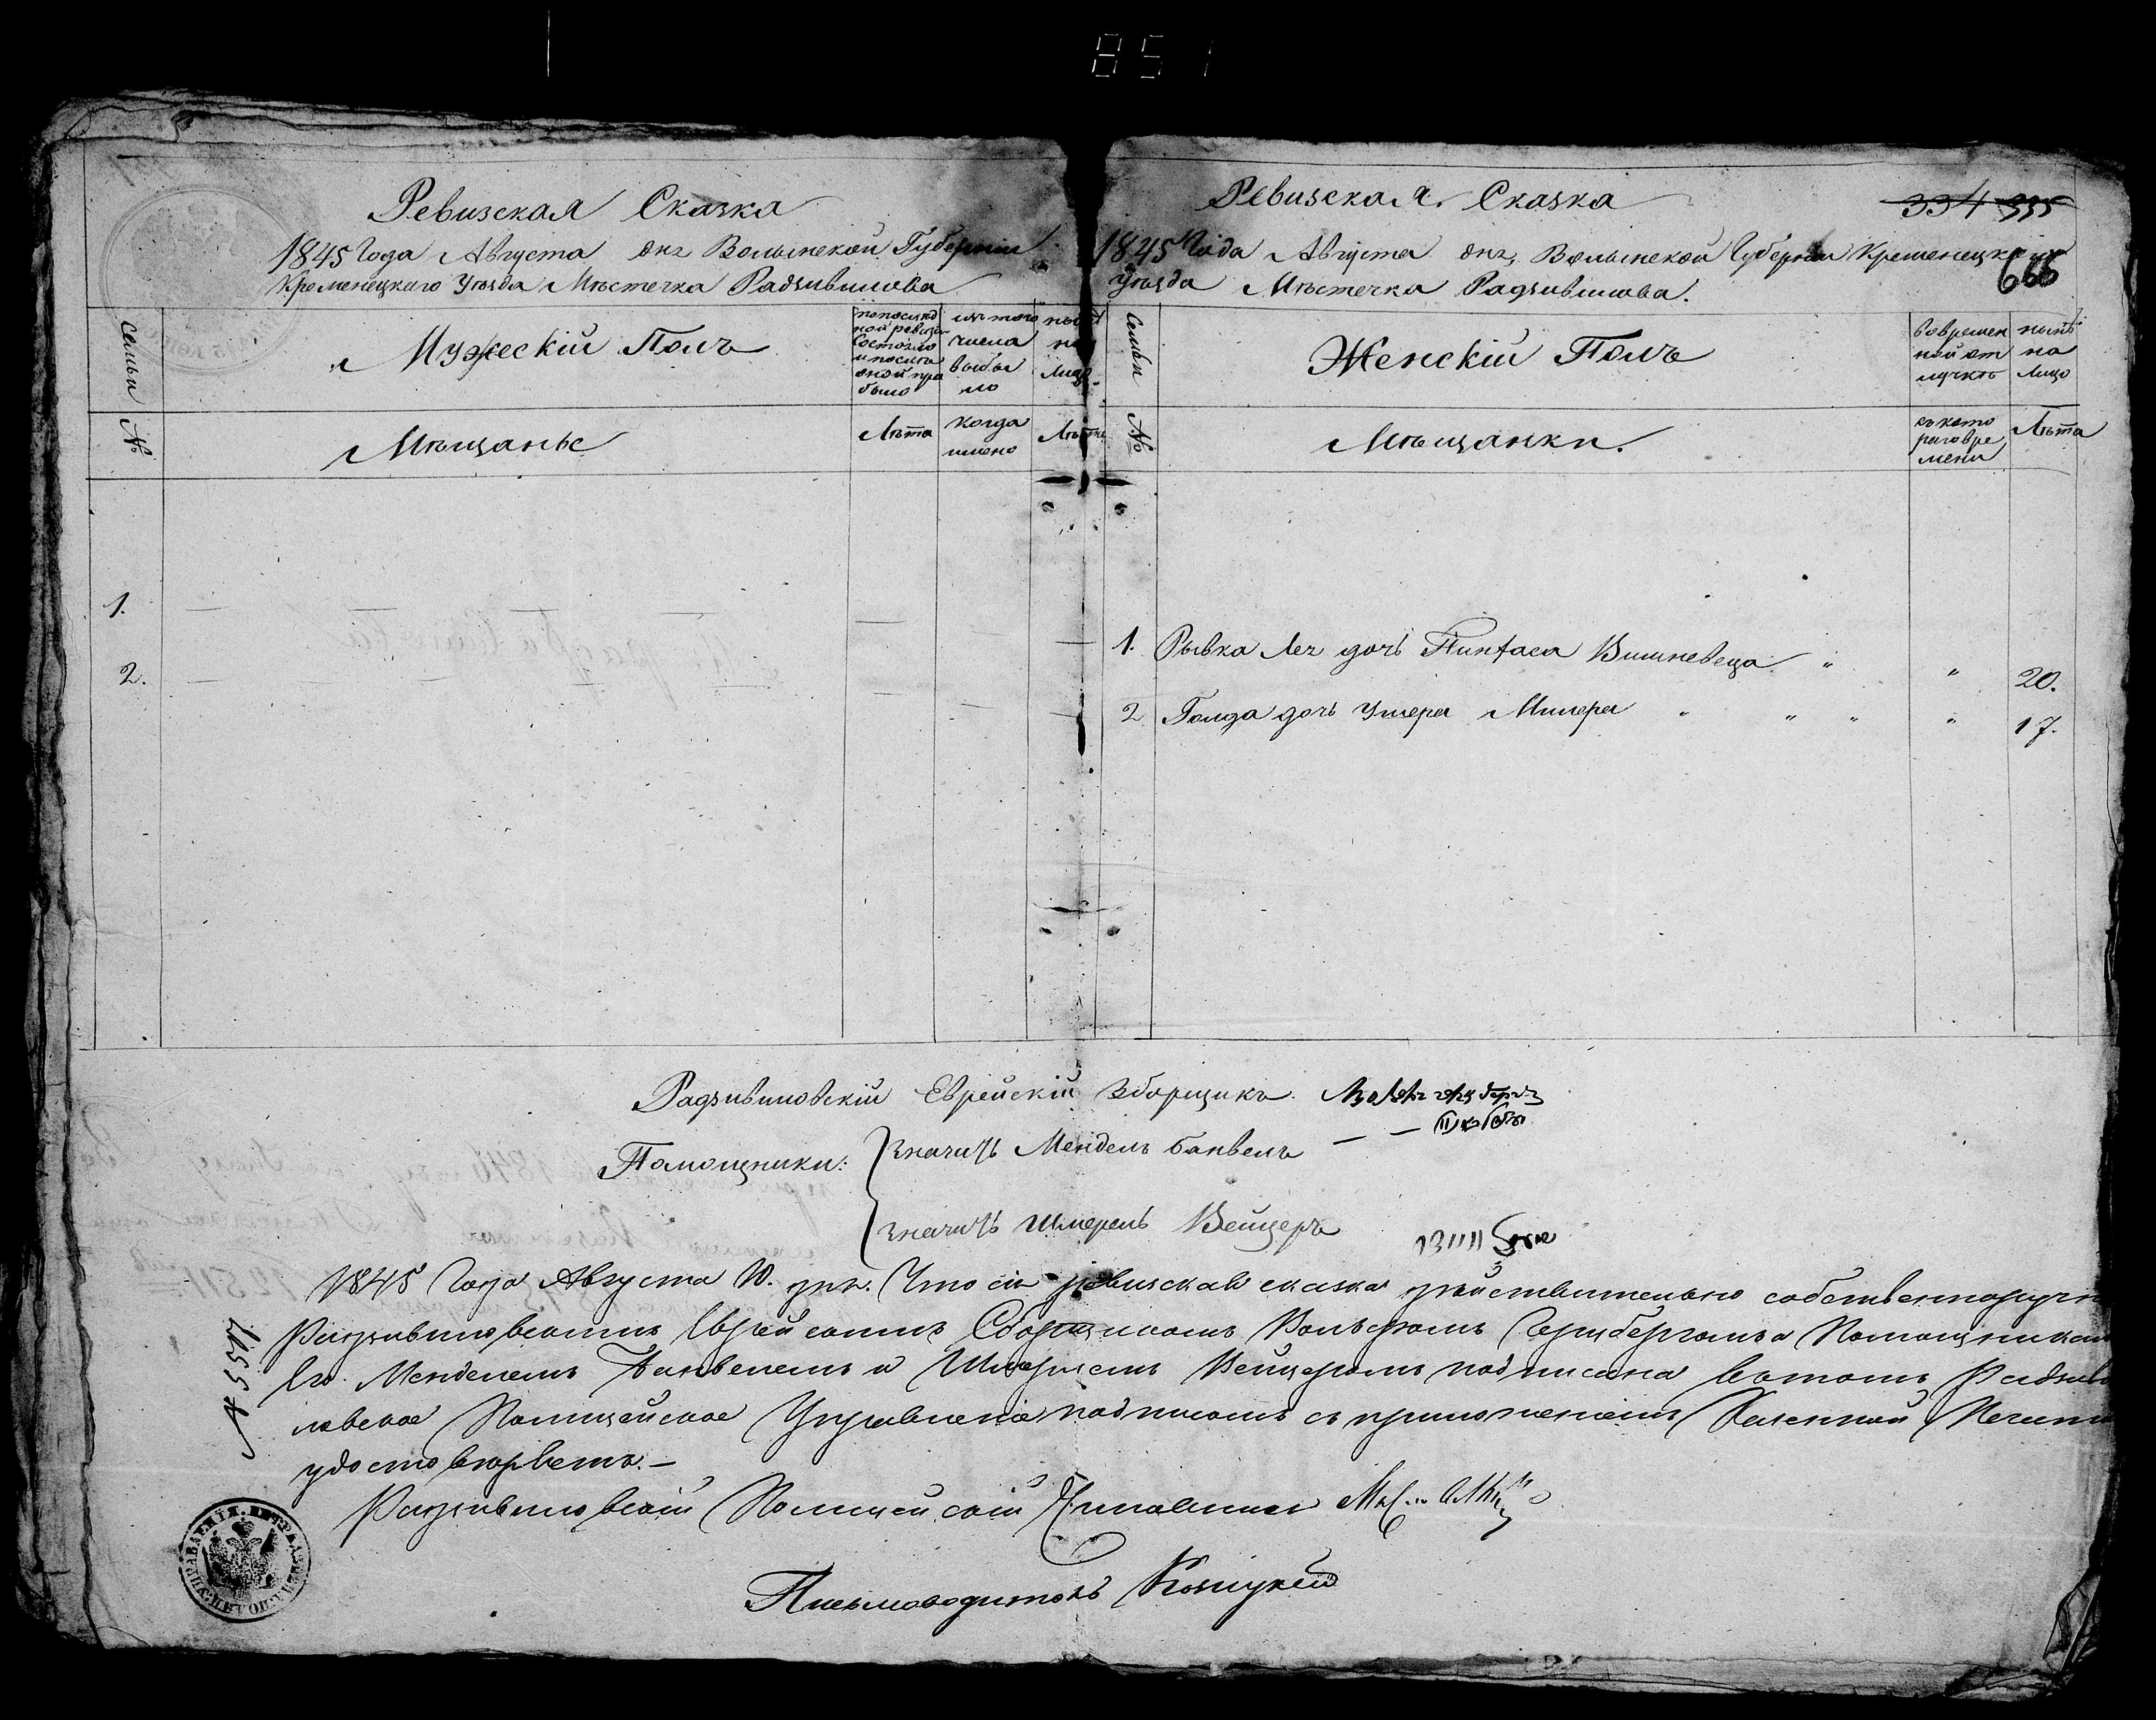 851
Ревизская Сказка
1845 Года Августа дня Волынской Губерніи
Кременецкаго Уѣзда Мѣстечка Радзивилова
Семьи
Мужескій Полъ
изъ того
числа
выбы
ло
№
Мѣщанѣ
Лѣта
когда
имено
Лѣта
1.
2.
Ревизская Сказка
334 335
1845 Года Августа дня, Волынской Губерніи Кременецкаго
666
Уѣзда Мѣстечка Радзивилова.
Семьи
Женскій Полъ
вовремен
ной от
лучкѣ
нынѣ
на
лицо
№
Мѣщанки.
съ кото
раго вре
мени
Лѣта
1. Рывка Лея дочь Пинхаса Вишневеца " " 20.
2 Голда дочь Ушера Милера " " " " 17.
Радзивиловскій Еврейскій Зборщикъ
Помощники: значитъ Мендель Банвель
значитъ Шмерель Вейцеръ
1845 Года Августа 10. дня. Что сія ревизская сказка дѣйствительно собственноручно
Радзивиловскимъ Еврейскимъ Сборщикомъ Вольфомъ Герцбергомъ и Помощниками
Его Менделемъ Банвелемъ и Шмерелемъ Вейцеромъ подписана въ томъ Радзиви
ловское Полицейское Управленіе подписомъ съ приложеніемъ Казенной Печати
удостовѣряетъ.—
Радзивиловскій Полицейскій
Письмоводитель